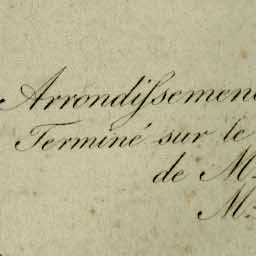 Arrondiſsemen
Terminé sur le
de M.
M.